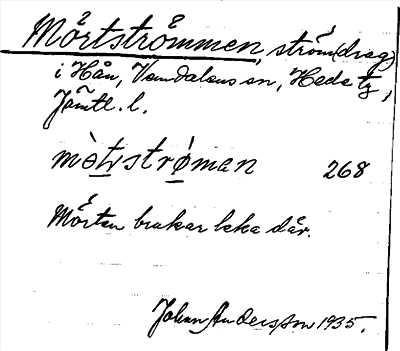 Mörtströmmen, ström(drag)
i Hån, Vemdalens sn, Hede tg,
Jämtl. l.
mø̀tʂtrǿman 268
Mörten brukar leka där.
Johan Andersson 1935.